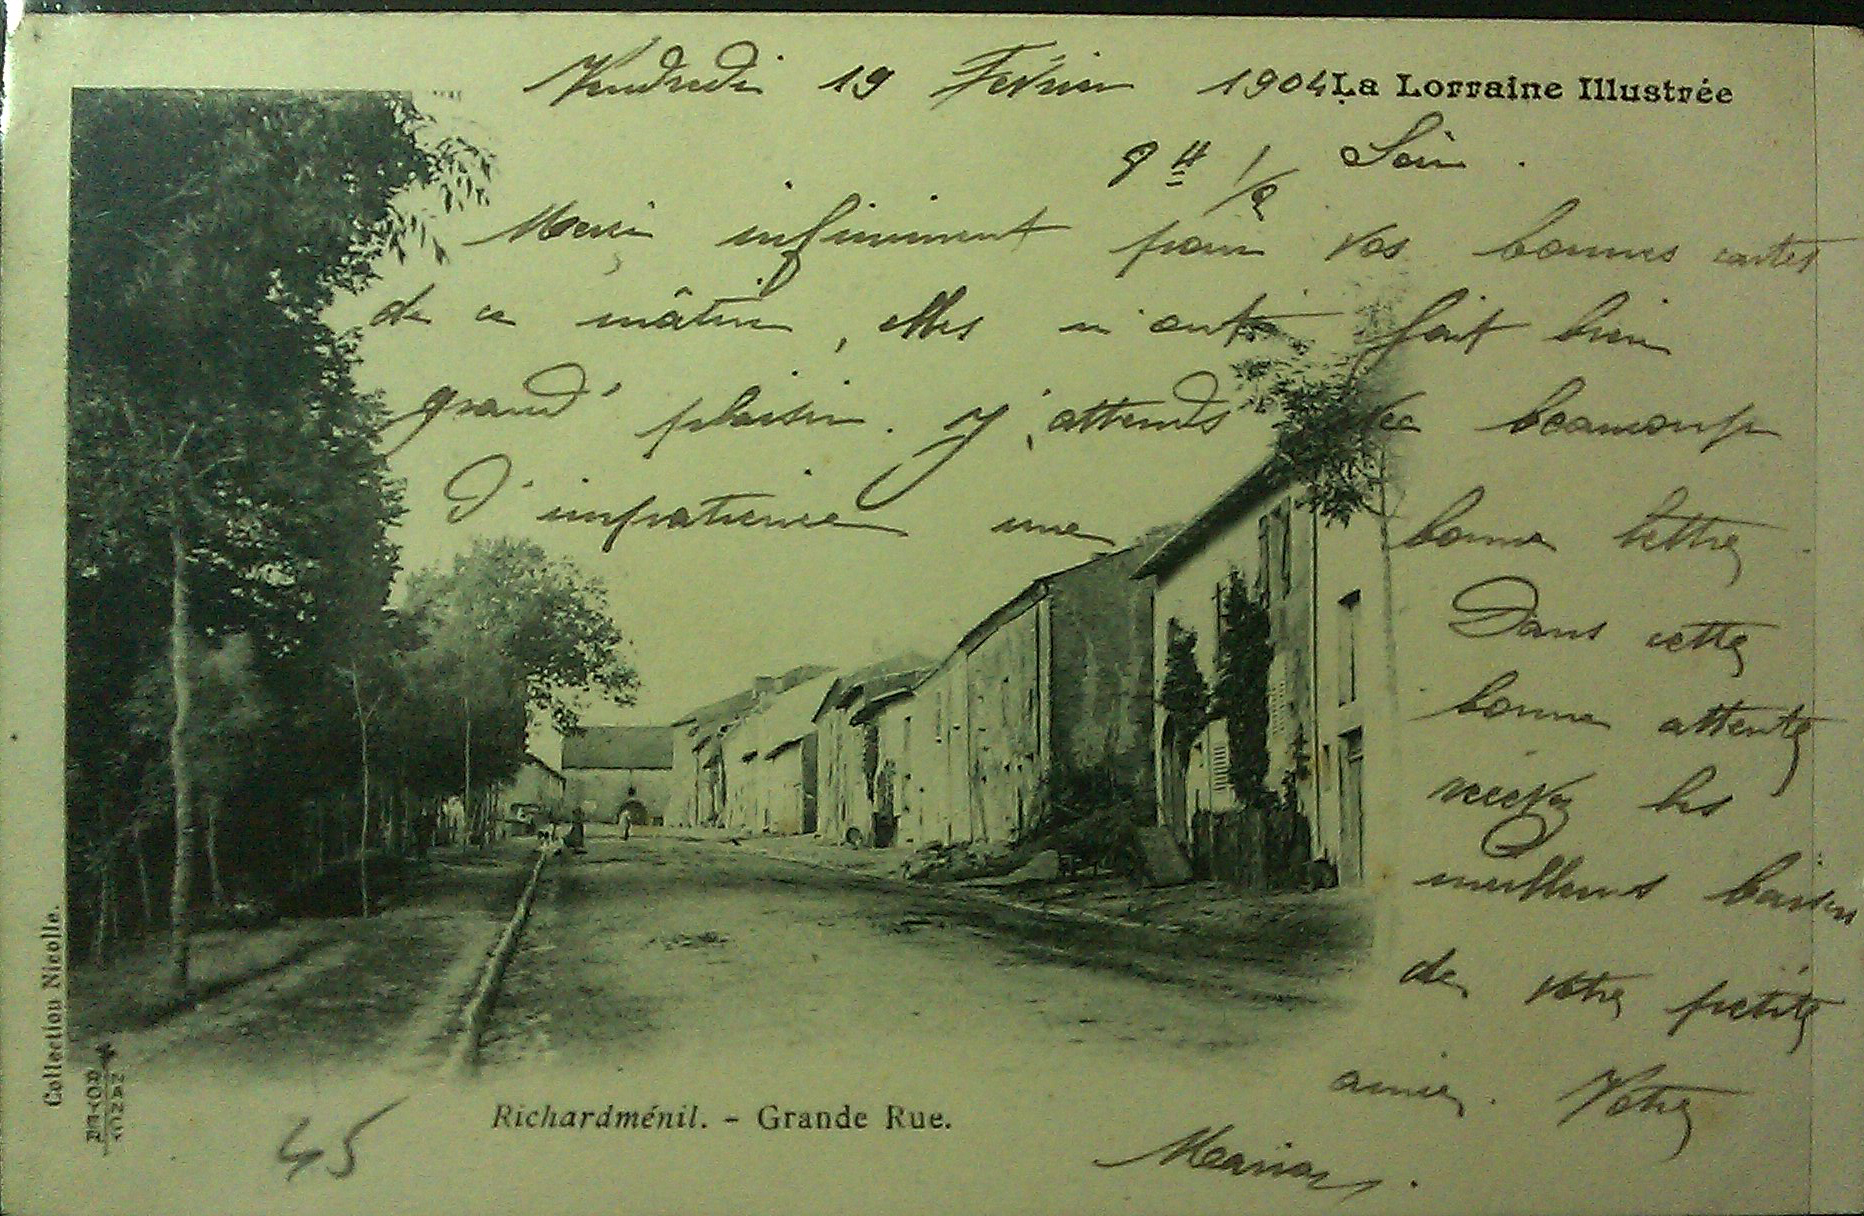 Vendredi 19 Février 1904
La Lorraine Illustrée
9 H 1/2 Soir.
Merci infiniment pour vos bonnes cartes
de ce mâtin, elles m'ont fait bien
grand' plaisir. J'attends avec beaucoup
d'impatience une bonne lettre.
Dans cette
bonne attente
recevez les
meilleurs baisers
de votre petite
amie. Votre
Collection Nicolle.
ROYER
NANCY
Richardménil. - Grande Rue.
45